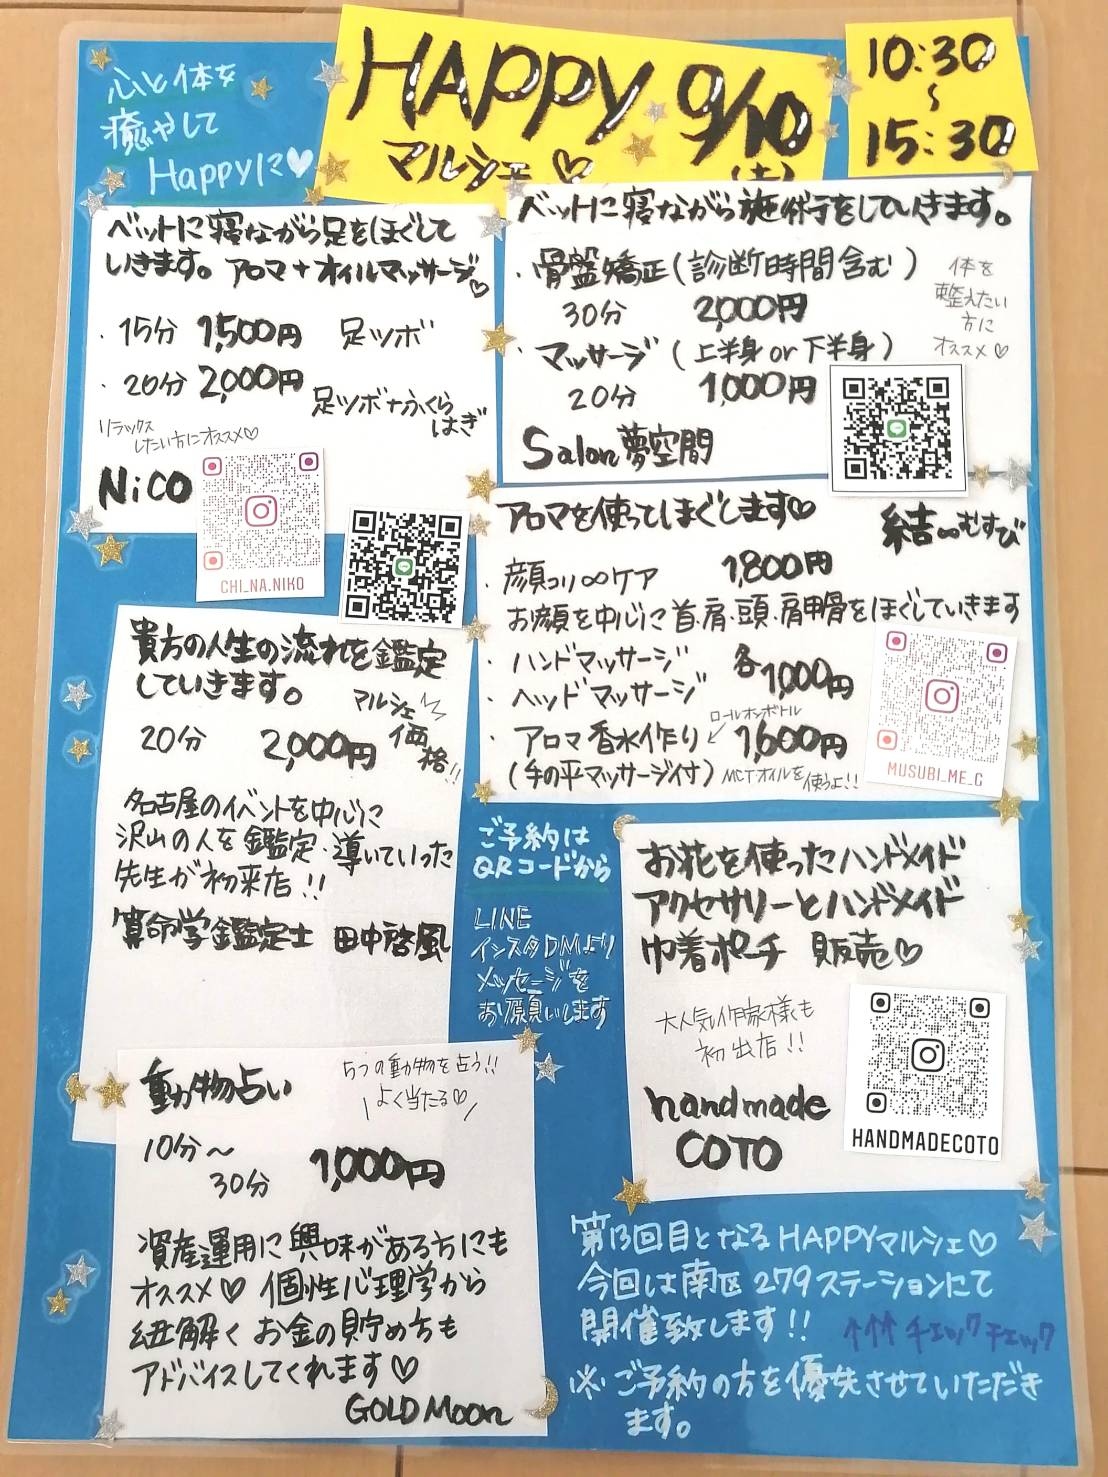 心と体を
癒やして
Happyに♡
HAPPY 9/10
マルシェ♡ (土)
10:30
～
15:30
ベットに寝ながら足をほぐして
いきます。アロマ+オイルマッサージ♡
・15分 1,500円 足ツボ
・20分 2,000円
足ツボ+ふくら
はぎ
リラックス
したい方にオススメ♡
NiCO
CHI_NA.NIKO
ベットに寝ながら施術をしていきます。
・骨盤矯正(診断時間含む)
30分 2,000円
・マッサージ(上半身or下半身)
20分 1,000円
体を
整えたい
方に
オススメ♡
Salon夢空間
アロマを使ってほぐします♡
結∞むすび
・顔コリ∞ケア 1,800円
お顔を中心に首・肩・頭・肩甲骨をほぐしていきます
・ハンドマッサージ
・ヘッドマッサージ
各1,000円
ロールオンボトル
・アロマ香水作り 1,600円
(手の平マッサージ付) MCTオイルを使うよ!!
MUSUBI_ME_C
貴方の人生の流れを鑑定
していきます。
20分 2,000円
マルシェ
価格!!
名古屋のイベントを中心に
沢山の人を鑑定・導いていった
先生が初来店!!
算命学鑑定士 田中啓風
ご予約は
QRコードから
LINE
インスタDMより
メッセージを
お願いします
お花を使ったハンドメイド
アクセサリーとハンドメイド
巾着ポーチ 販売♡
大人気作家様も
初出店!!
handmade
COTO
HANDMADECOTO
動物占い
5つの動物を占う!!
\よく当たる♡/
10分～
30分
1,000円
資産運用に興味がある方にも
オススメ♡個性心理学から
紐解くお金の貯め方も
アドバイスしてくれます♡
GOLD Moon
第13回目となるHAPPYマルシェ♡
今回は南区279ステーションにて
開催致します!!
↑↑↑チェックチェック
※ご予約の方を優先させていただき
ます。